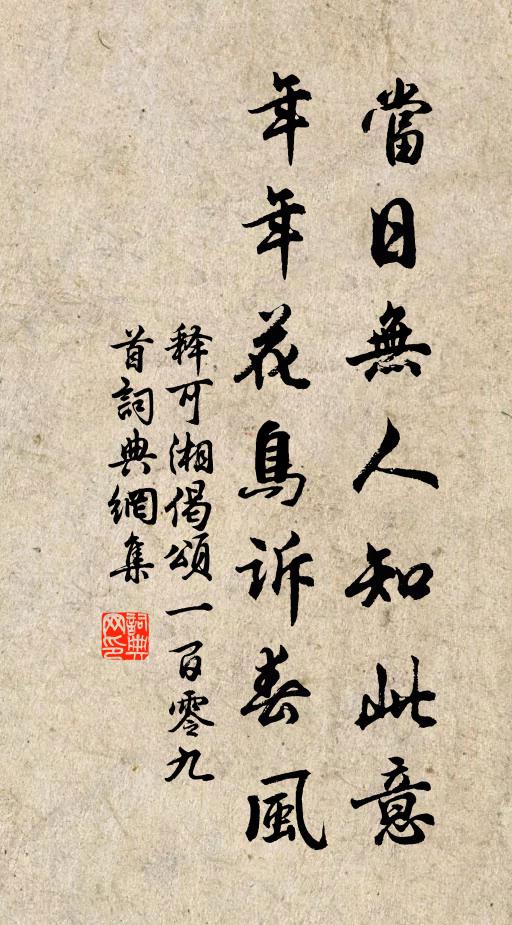 當日無人知此意
年年花鳥訴春風
释可湘偈頌一百零九
首詞典網集
詞典
网印